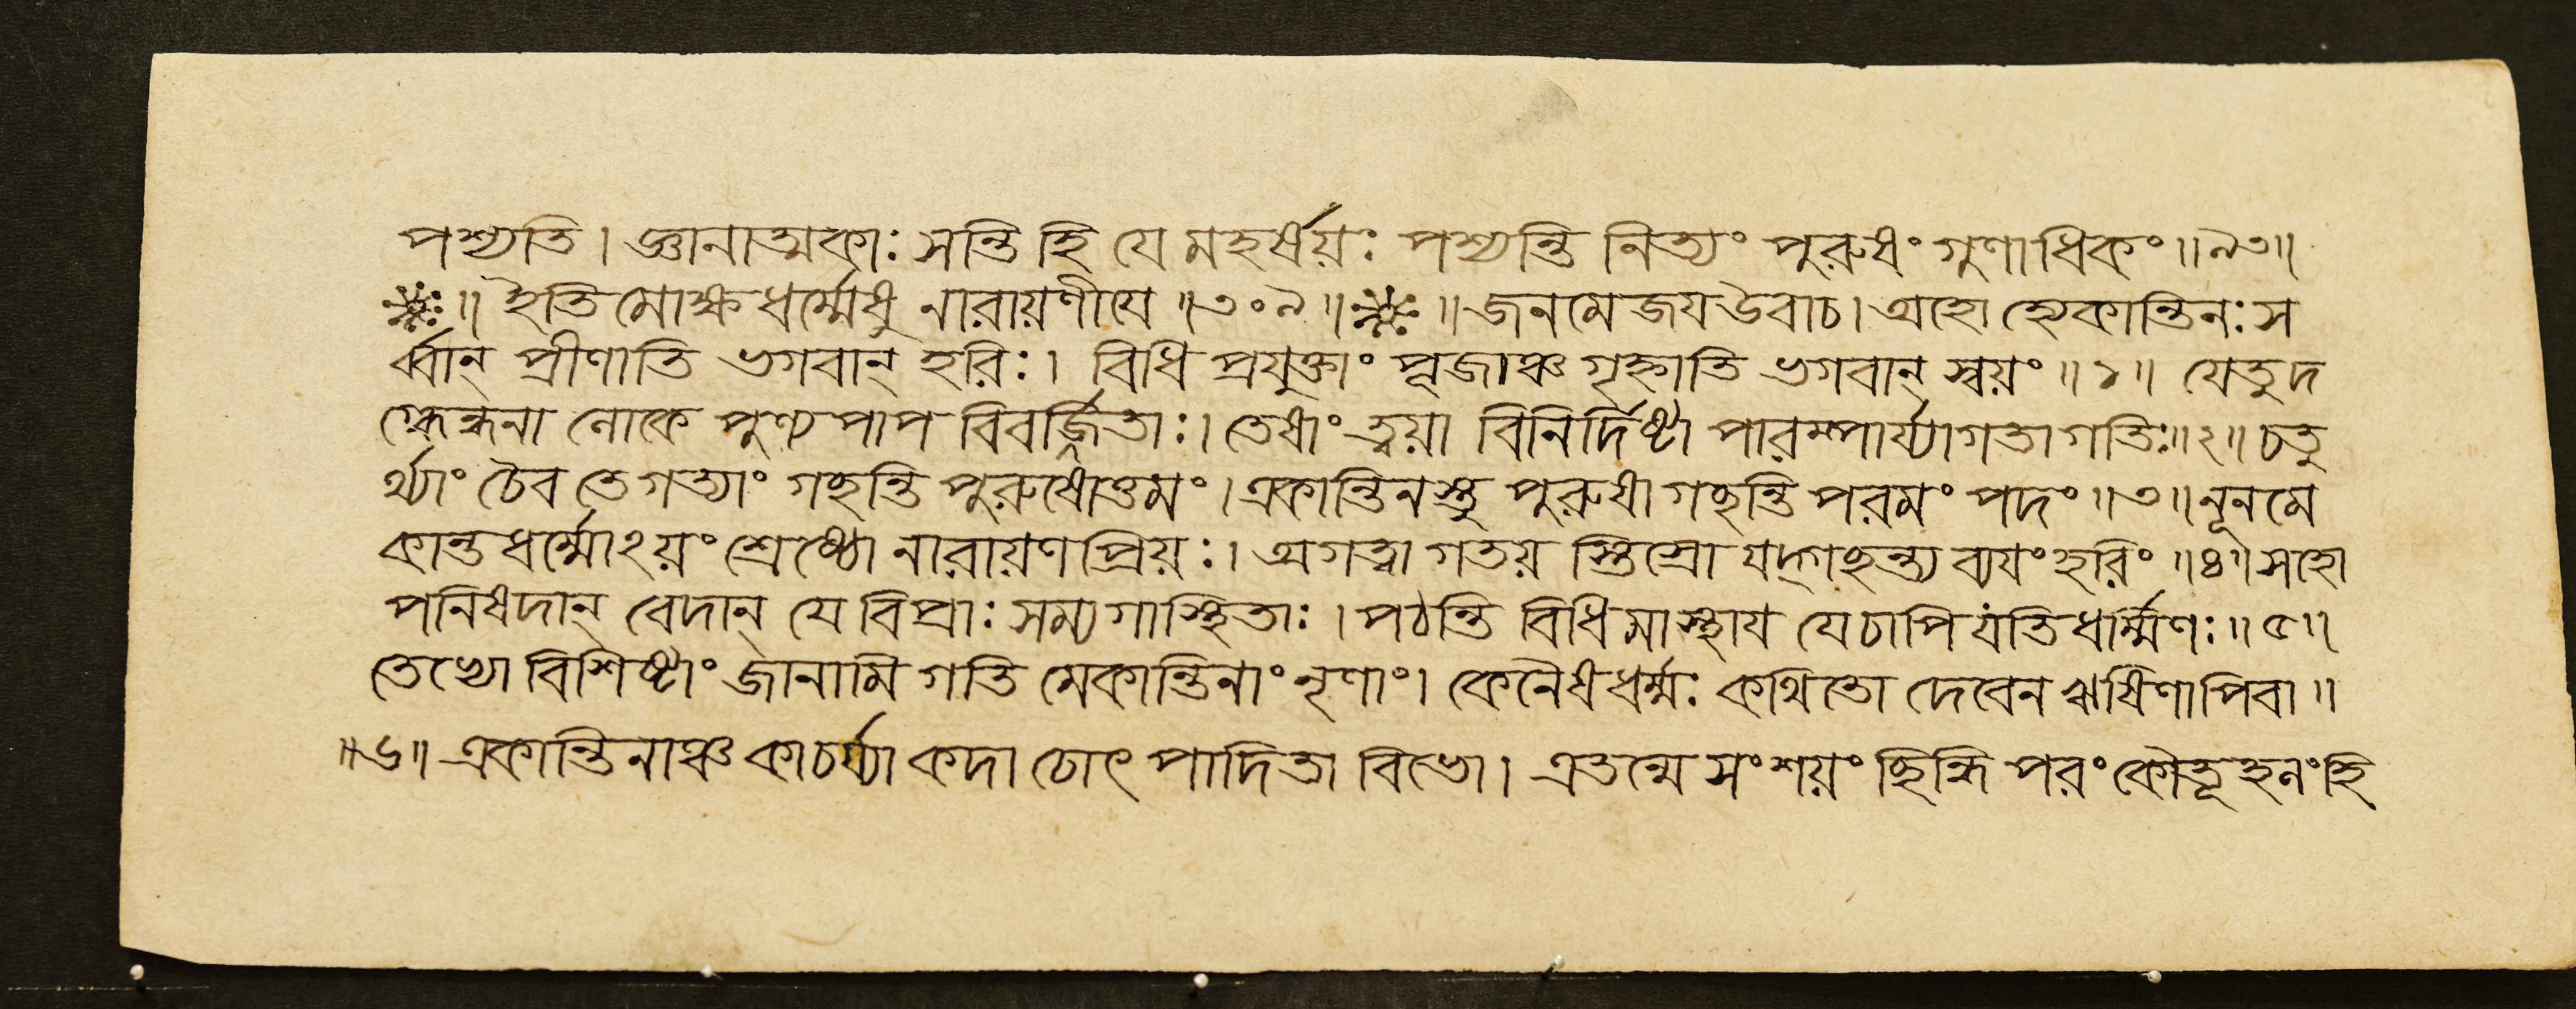 পশ্যতি । জ্ঞানাত্মকাঃ সন্তি হি যে মহর্ষয়ঃ পশ্যন্তি নিত্যং পুরুষং গুণাধিকং ॥ ৯৩ ॥
❋ঃ ॥ ইতি মোক্ষধর্ম্মেষু নারায়ণীযে ॥ ৩০৯ ॥ ❋ঃ ॥ জনমেজয উবাচ । অহো হ্যেকান্তিনঃ স
র্ব্বান্ প্রীণাতি ভগবান্ হরিঃ । বিধি প্রযুক্তাং পূজাঞ্চ গৃহ্নাতি ভগবান্ স্বয়ং ॥ ১ ॥ যেতু দ
গ্ধেন্ধনা লোকে পুণ্যপাপ বিবর্জ্জিতাঃ । তেষাং ত্বয়া বিনির্দিষ্টা পারম্পার্য্যাগতা গতিঃ ॥ ২ ॥ চতু
র্থ্যাং চৈব তে গত্যাং গছন্তি পুরুষোত্তমং । একান্তিনস্তু পুরুষা গছন্তি পরমং পদং ॥ ৩ ॥ নূনমে
কান্তধর্ম্মোঽয়ং শ্রেষ্ঠো নারায়ণপ্রিয়ঃ । অগত্বা গতয় স্তিস্রো যদ্গছন্ত্য ব্যযং হরিং ॥ ৪ ॥ সহো
পনিষদান্ বেদান্ যে বিপ্রাঃ সম্যগাস্থিতাঃ । পঠন্তি বিধিমাস্থায যেচাপি যতিধার্ম্মিণঃ ॥ ৫ ॥
তেভ্যো বিশিষ্টাং জানামি গতি মেকান্তিনাং নৃণাং । কেনৈষধর্ম্মঃ কথিতো দেবেন ঋষিণাপিবা ॥
॥ ৬ ॥ একান্তিনাঞ্চ কাচর্য্যা কদা চোৎ পাদিতা বিভো । এতন্মে সংশয়ং ছিন্ধি পরং কৌতূহলং হি